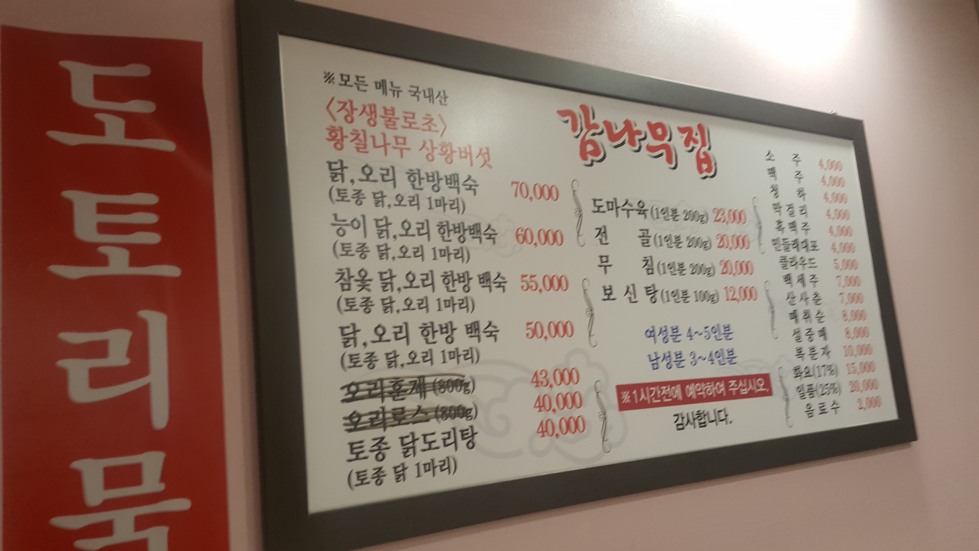 도토리묵
※모든 메뉴 국내산
<장생불로초>
황칠나무 상황버섯
닭,오리 한방백숙 70,000
(토종 닭,오리 1마리)
능이 닭,오리 한방백숙 60,000
(토종 닭,오리 1마리)
참옻 닭,오리 한방 백숙 55,000
(토종 닭,오리 1마리)
닭,오리 한방 백숙 50,000
(토종 닭,오리 1마리)
오리훈제 (800g) 43,000
오리로스 (800g) 40,000
토종 닭도리탕 40,000
(토종 닭 1마리)
감나무집
도마수육 (1인분 200g) 23,000
전 골 (1인분 200g) 20,000
무 침 (1인분 200g) 20,000
보 신 탕 (1인분 100g) 12,000
여성분 4~5인분
남성분 3~4인분
※1시간전에 예약하여 주십시오.
감사합니다.
소 주 4,000
맥 주 4,000
청 하 4,000
막 걸 리 4,000
흑 맥 주 4,000
민들레대포 4,000
클라우드 5,000
백 세 주 7,000
산 사 춘 7,000
매 취 순 8,000
설 중 매 8,000
복 분 자 10,000
화요(17%) 15,000
일품(25%) 20,000
음 료 수 2,000